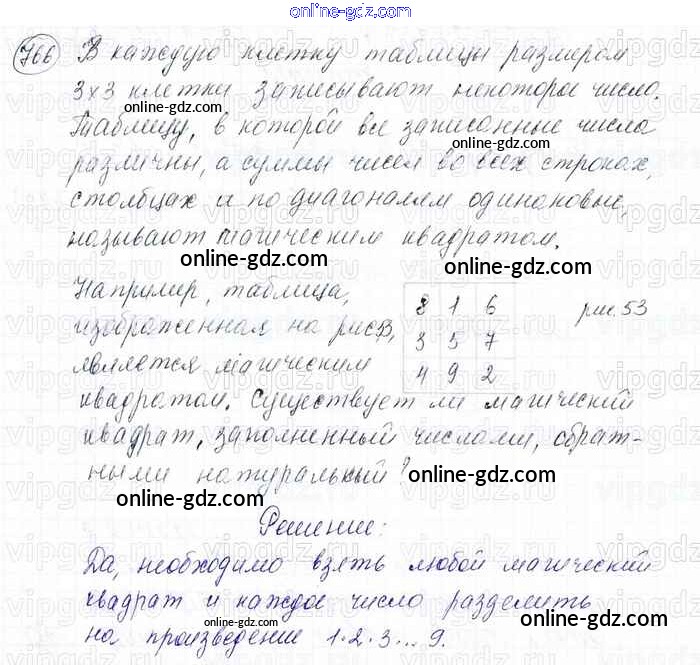 766 В каждую клетку таблицы размером
3×3 клетки записывают некоторые числа.
Таблицу, в которой все записанные числа
различны, а суммы чисел во всех строках,
столбцах и по диагоналям одинаковые,
называют магическим квадратом.
Например, таблица,
изображенная на рис53,
является магическим
квадратом. Существует ли магический
квадрат, заполненный числами, обрат-
ными натуральный?
8 1 6
3 5 7
4 9 2
рис.53
Решение:
Да, необходимо взять любой магический
квадрат и каждое число разделить
на произведение 1·2·3...9.
online-gdz.com
online-gdz.com
online-gdz.com
online-gdz.com
online-gdz.com
online-gdz.com
online-gdz.com
online-gdz.com
online-gdz.com
online-gdz.com
online-gdz.com
online-gdz.com